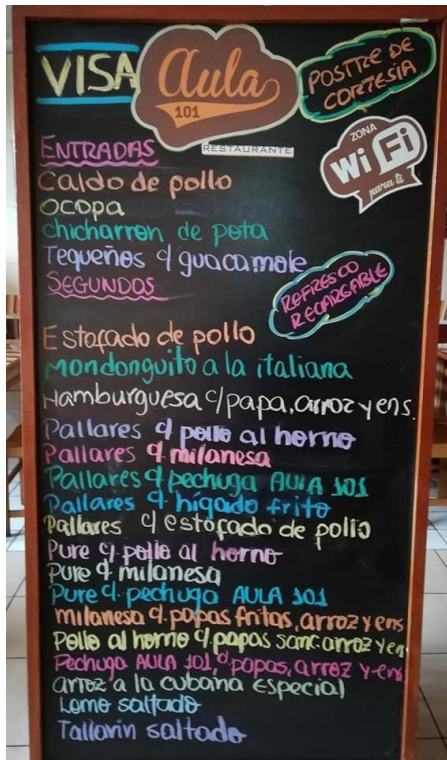 VISA
Aula
101
RESTAURANTE
POSTRE DE
CORTESIA
ZONA
Wi Fi
para ti
ENTRADAS
Caldo de pollo
OCOPA
chicharron de pota
Tequeños c/ guacamole
SEGUNDOS
REFRESCO
RECARGABLE
Estofado de pollo
Mondonguito a la italiana
Hamburguesa c/papa, arroz y ens.
Pallares c/ pollo al horno
Pallares c/ milanesa
Pallares c/ pechuga AULA 101
Pallares c/ hígado frito
Pallares c/ estofado de pollo
Pure c/ pollo al horno
Pure c/ milanesa
Pure c/ pechuga AULA 101
milanesa c/ papas fritas, arroz y ens
Pollo al horno c/ papas sanc. arroz y en
Pechuga AULA 101, c/ papas, arroz y ens
arroz a la cubana Especial
Lomo saltado
Tallarin saltado